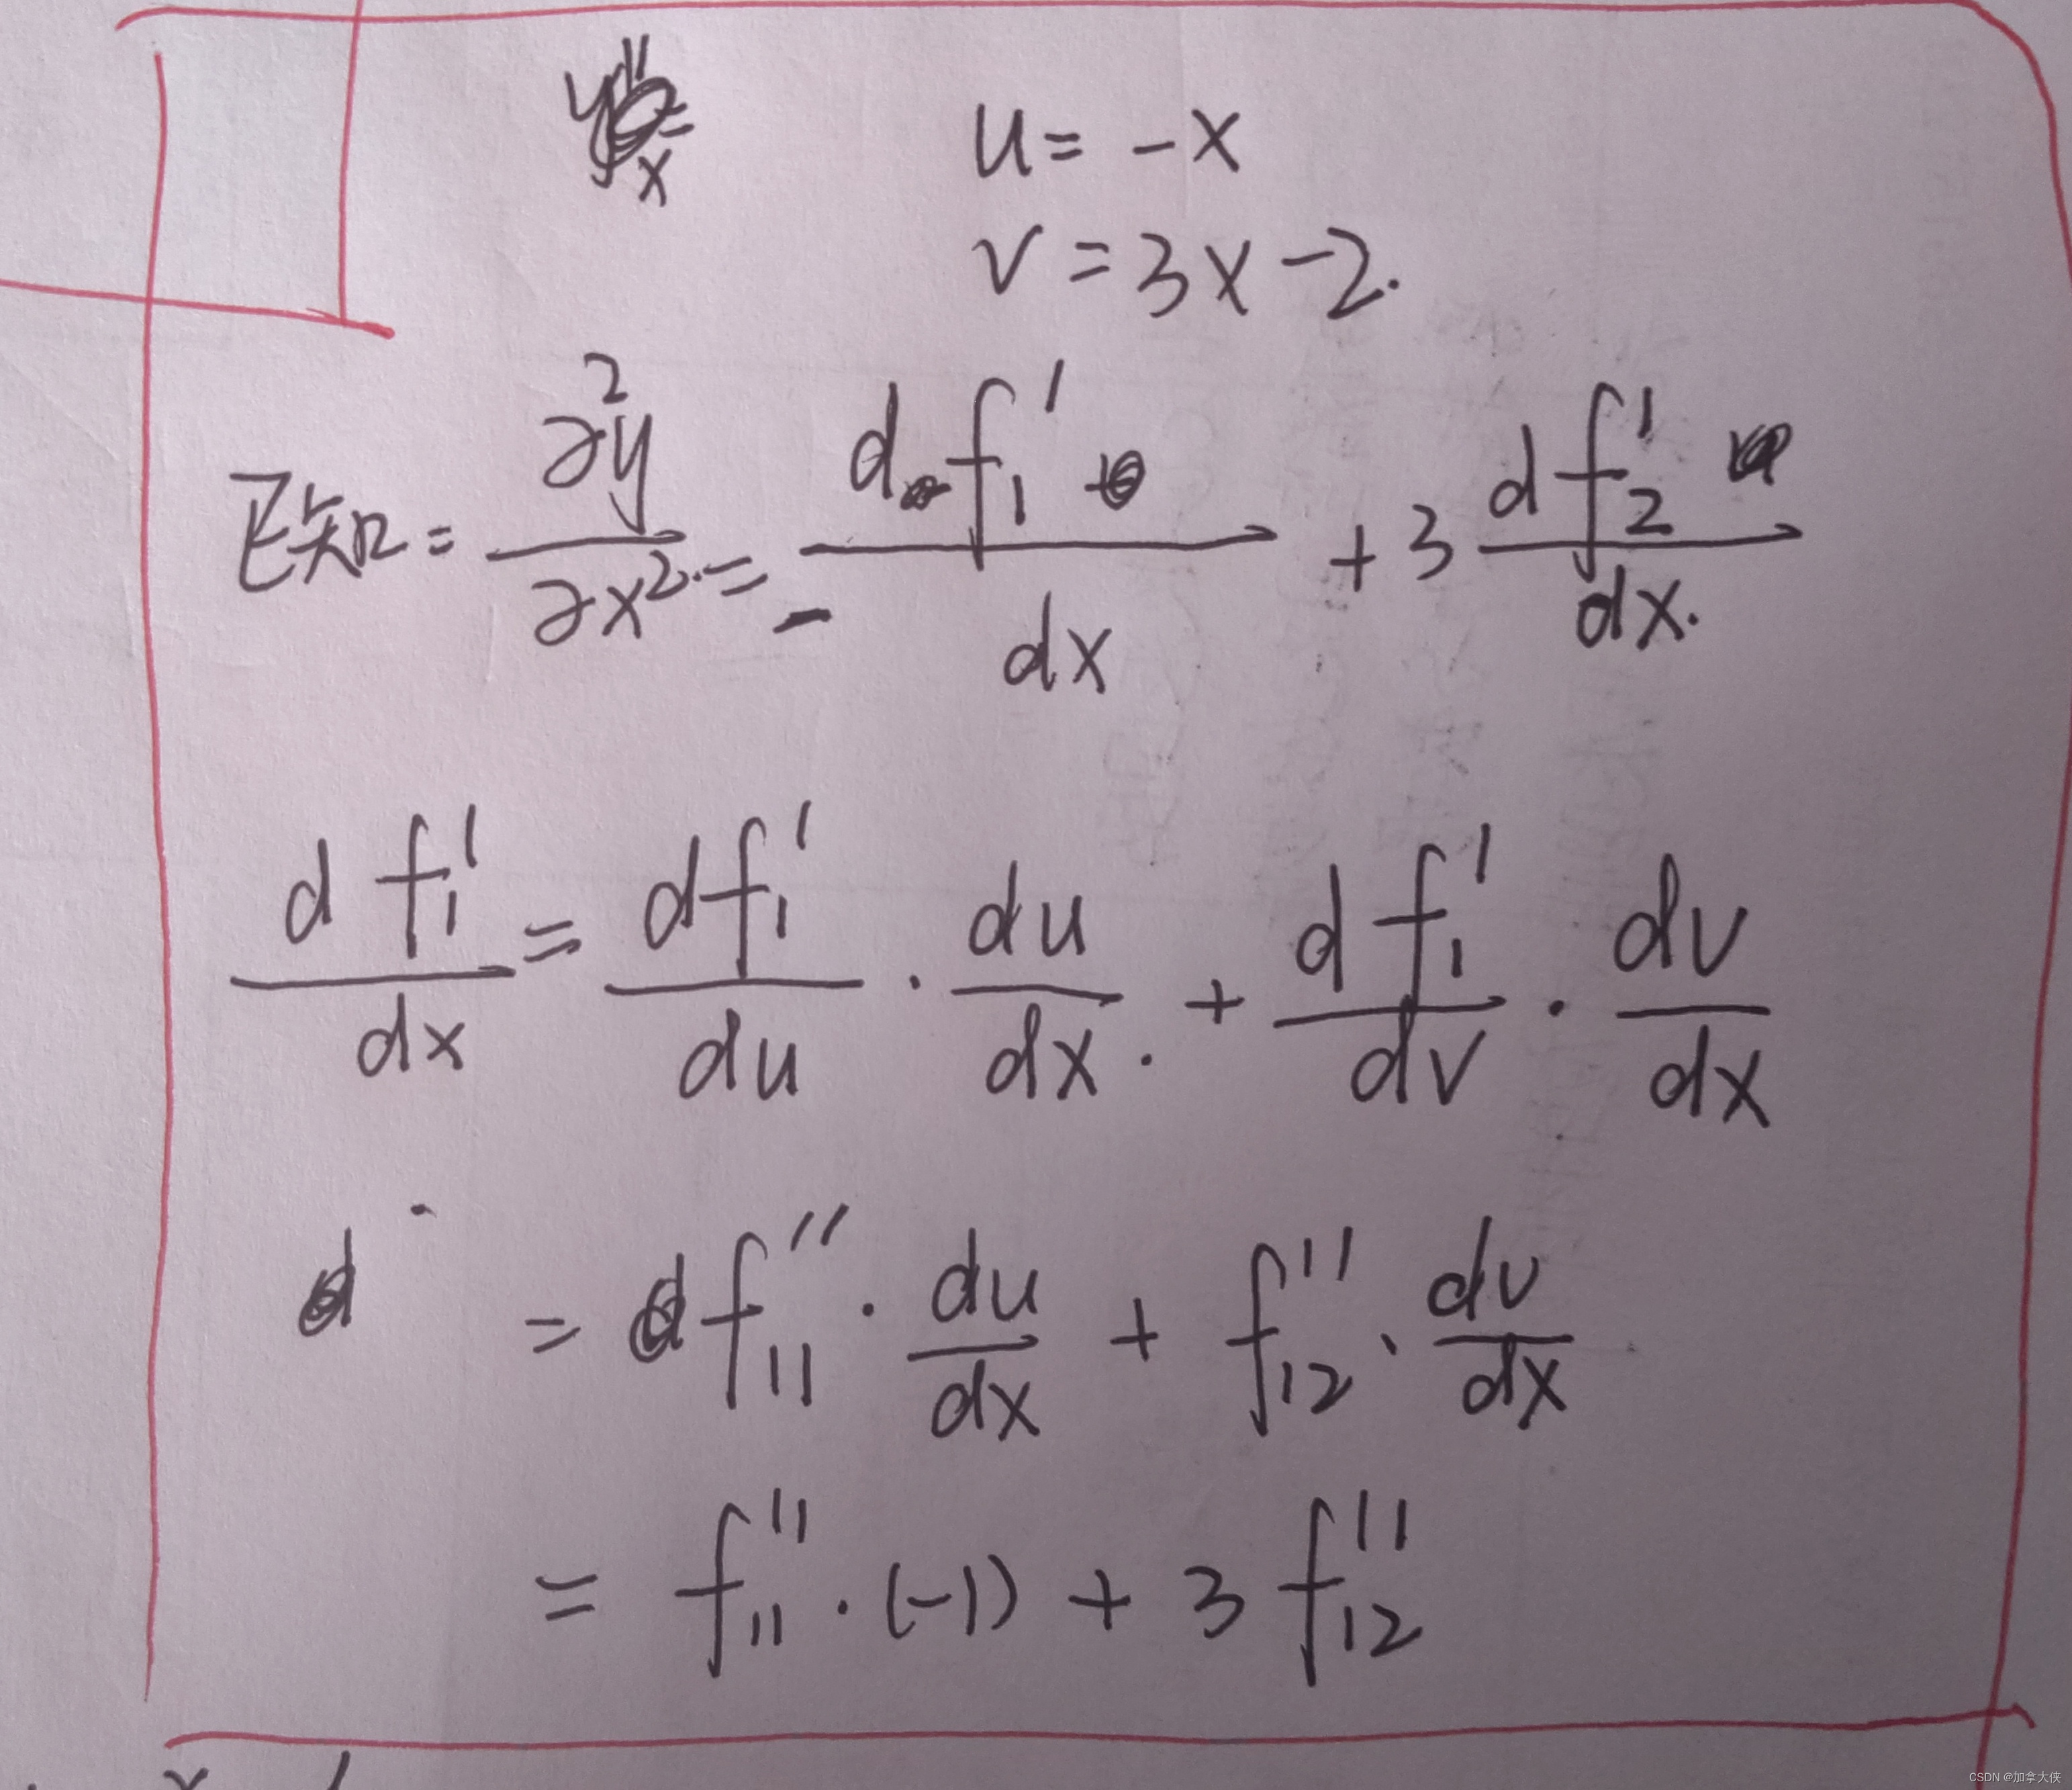 u = -x
v = 3x - 2.
已知 = ∂²y/∂x² = - d f₁'/dx + 3 d f₂'/dx.
d f₁'/dx = d f₁'/du · du/dx. + d f₁'/dv · dv/dx
= f₁₁'' · du/dx + f₁₂'' · dv/dx
= f₁₁'' · (-1) + 3 f₁₂''
CSDN @加拿大侠